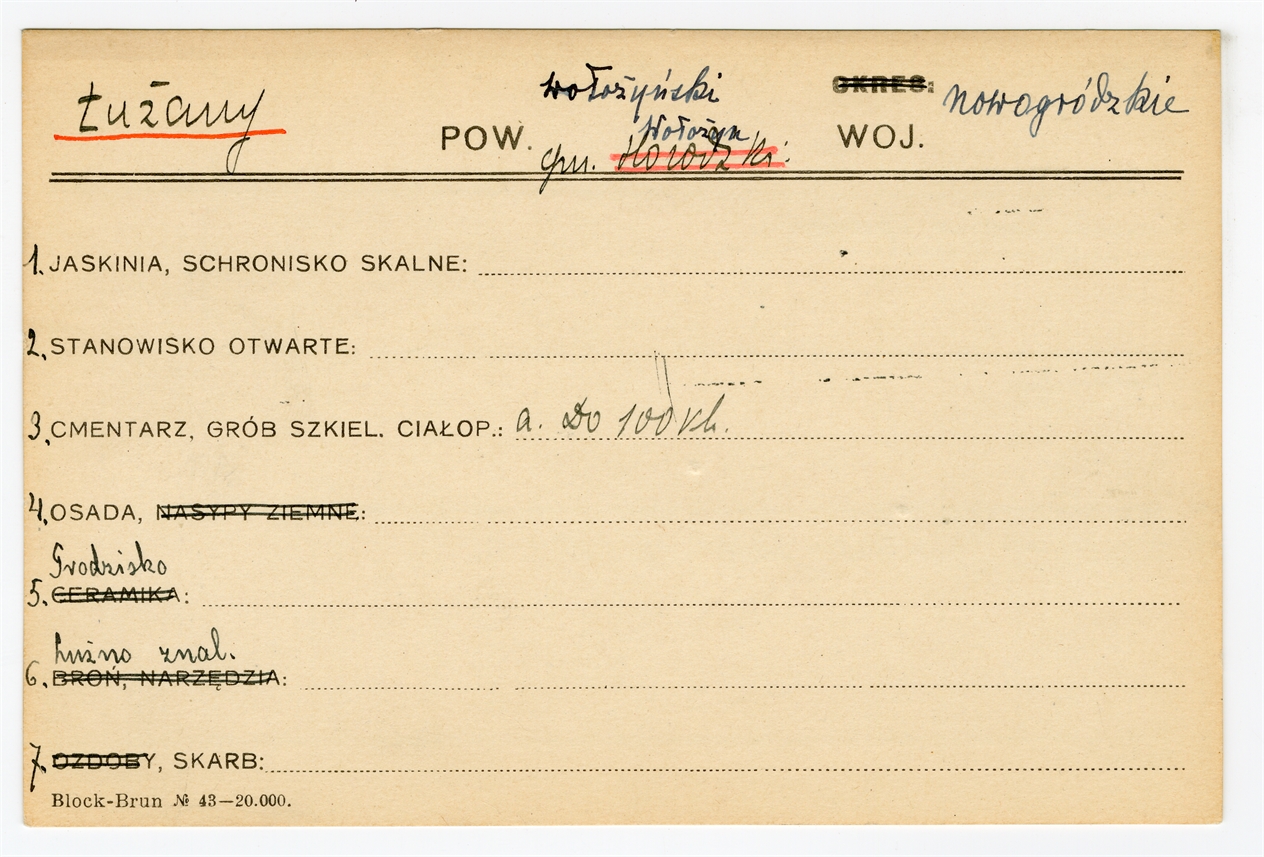 Łużany
POW. wołożyński
OKRES:
WOJ. nowogródzkie
Wołożyn
gm. Horodzki.
1. JASKINIA, SCHRONISKO SKALNE:
2. STANOWISKO OTWARTE:
3. CMENTARZ, GRÓB SZKIEL. CIAŁOP.: a. Do 100 kh.
4. OSADA, NASYPY ZIEMNE:
Grodzisko
5. CERAMIKA:
Luźno znal.
6. BROŃ, NARZĘDZIA:
7. OZDOBY, SKARB:
Block-Brun № 43—20.000.